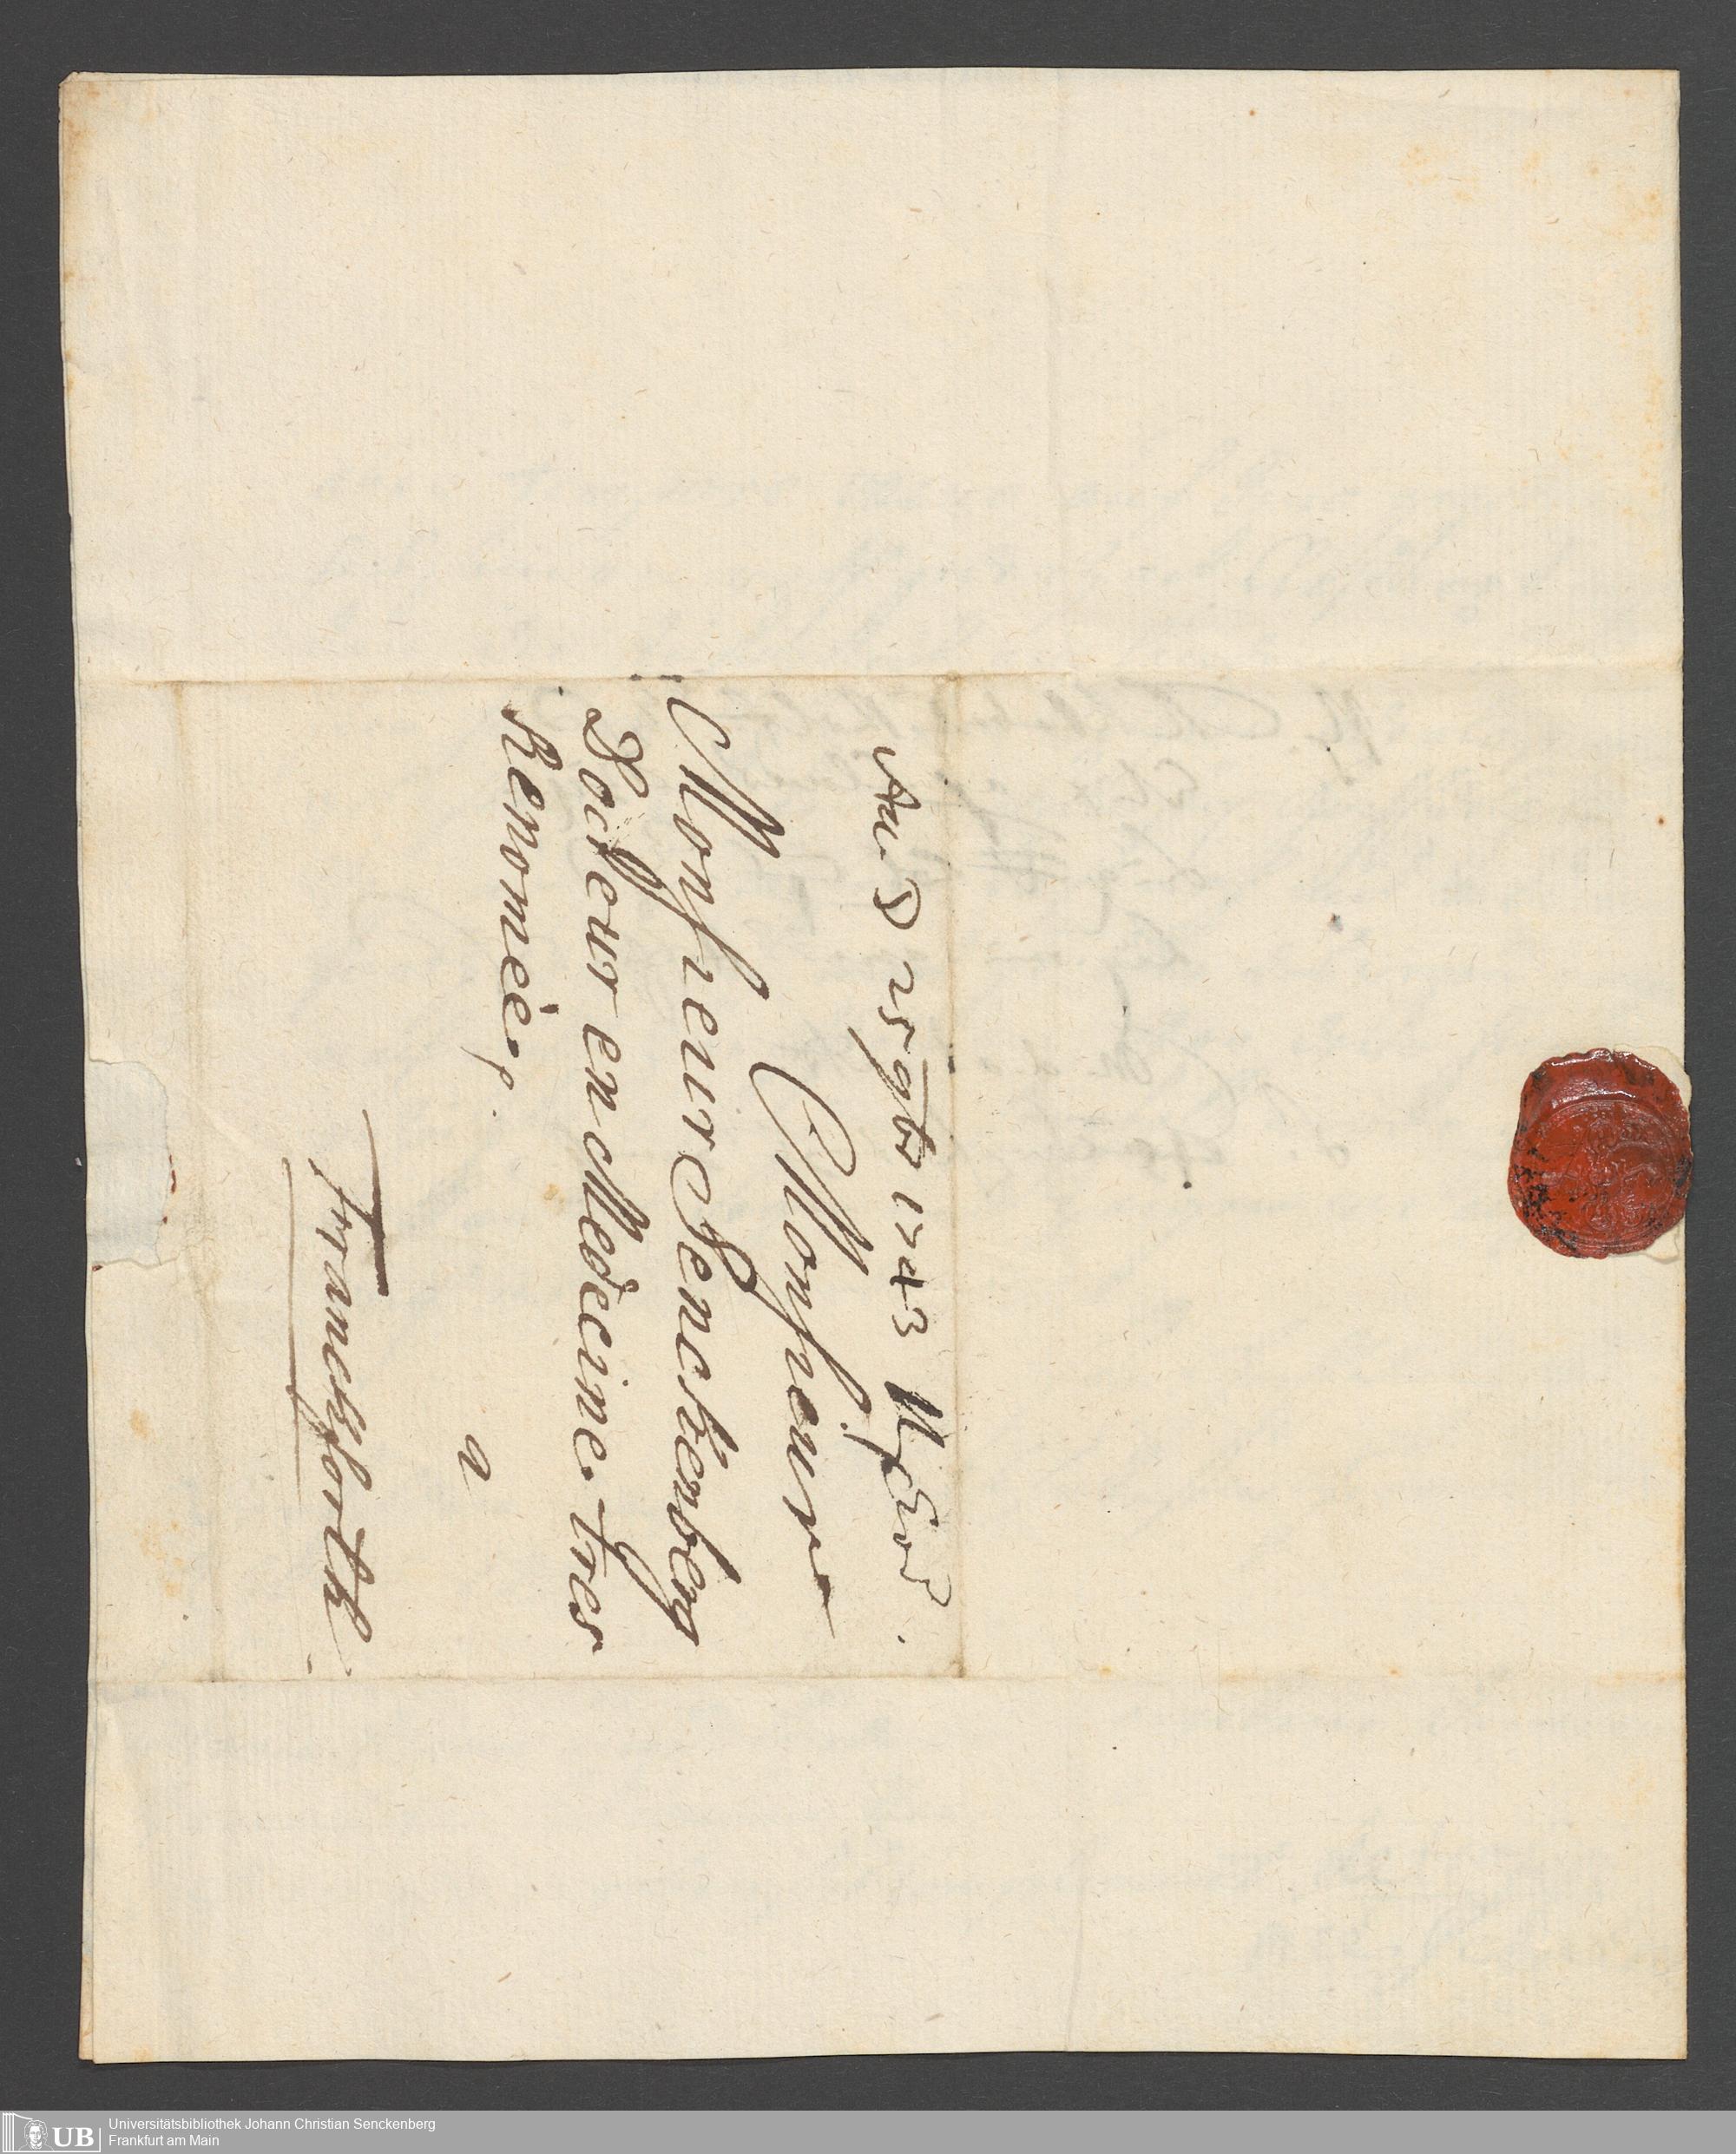 25 9br 1743
Monsieur
Monsieur Senckenberg
Docteur en Medecine tres
Renomèe,
a
Franckforth.
UB Universitätsbibliothek Johann Christian Senckenberg
Frankfurt am Main